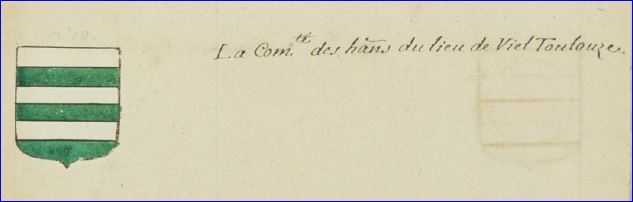 La Com.té des hãns du lieu de Viel Toulouze.